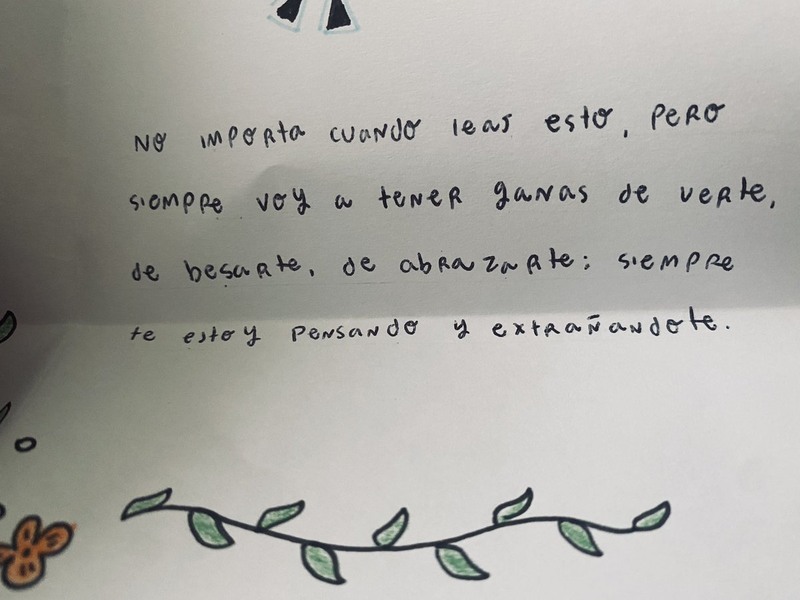 No importa cuando leas esto, pero
siempre voy a tener ganas de verte,
de besarte, de abrazarte; siempre
te estoy pensando y extrañandote.